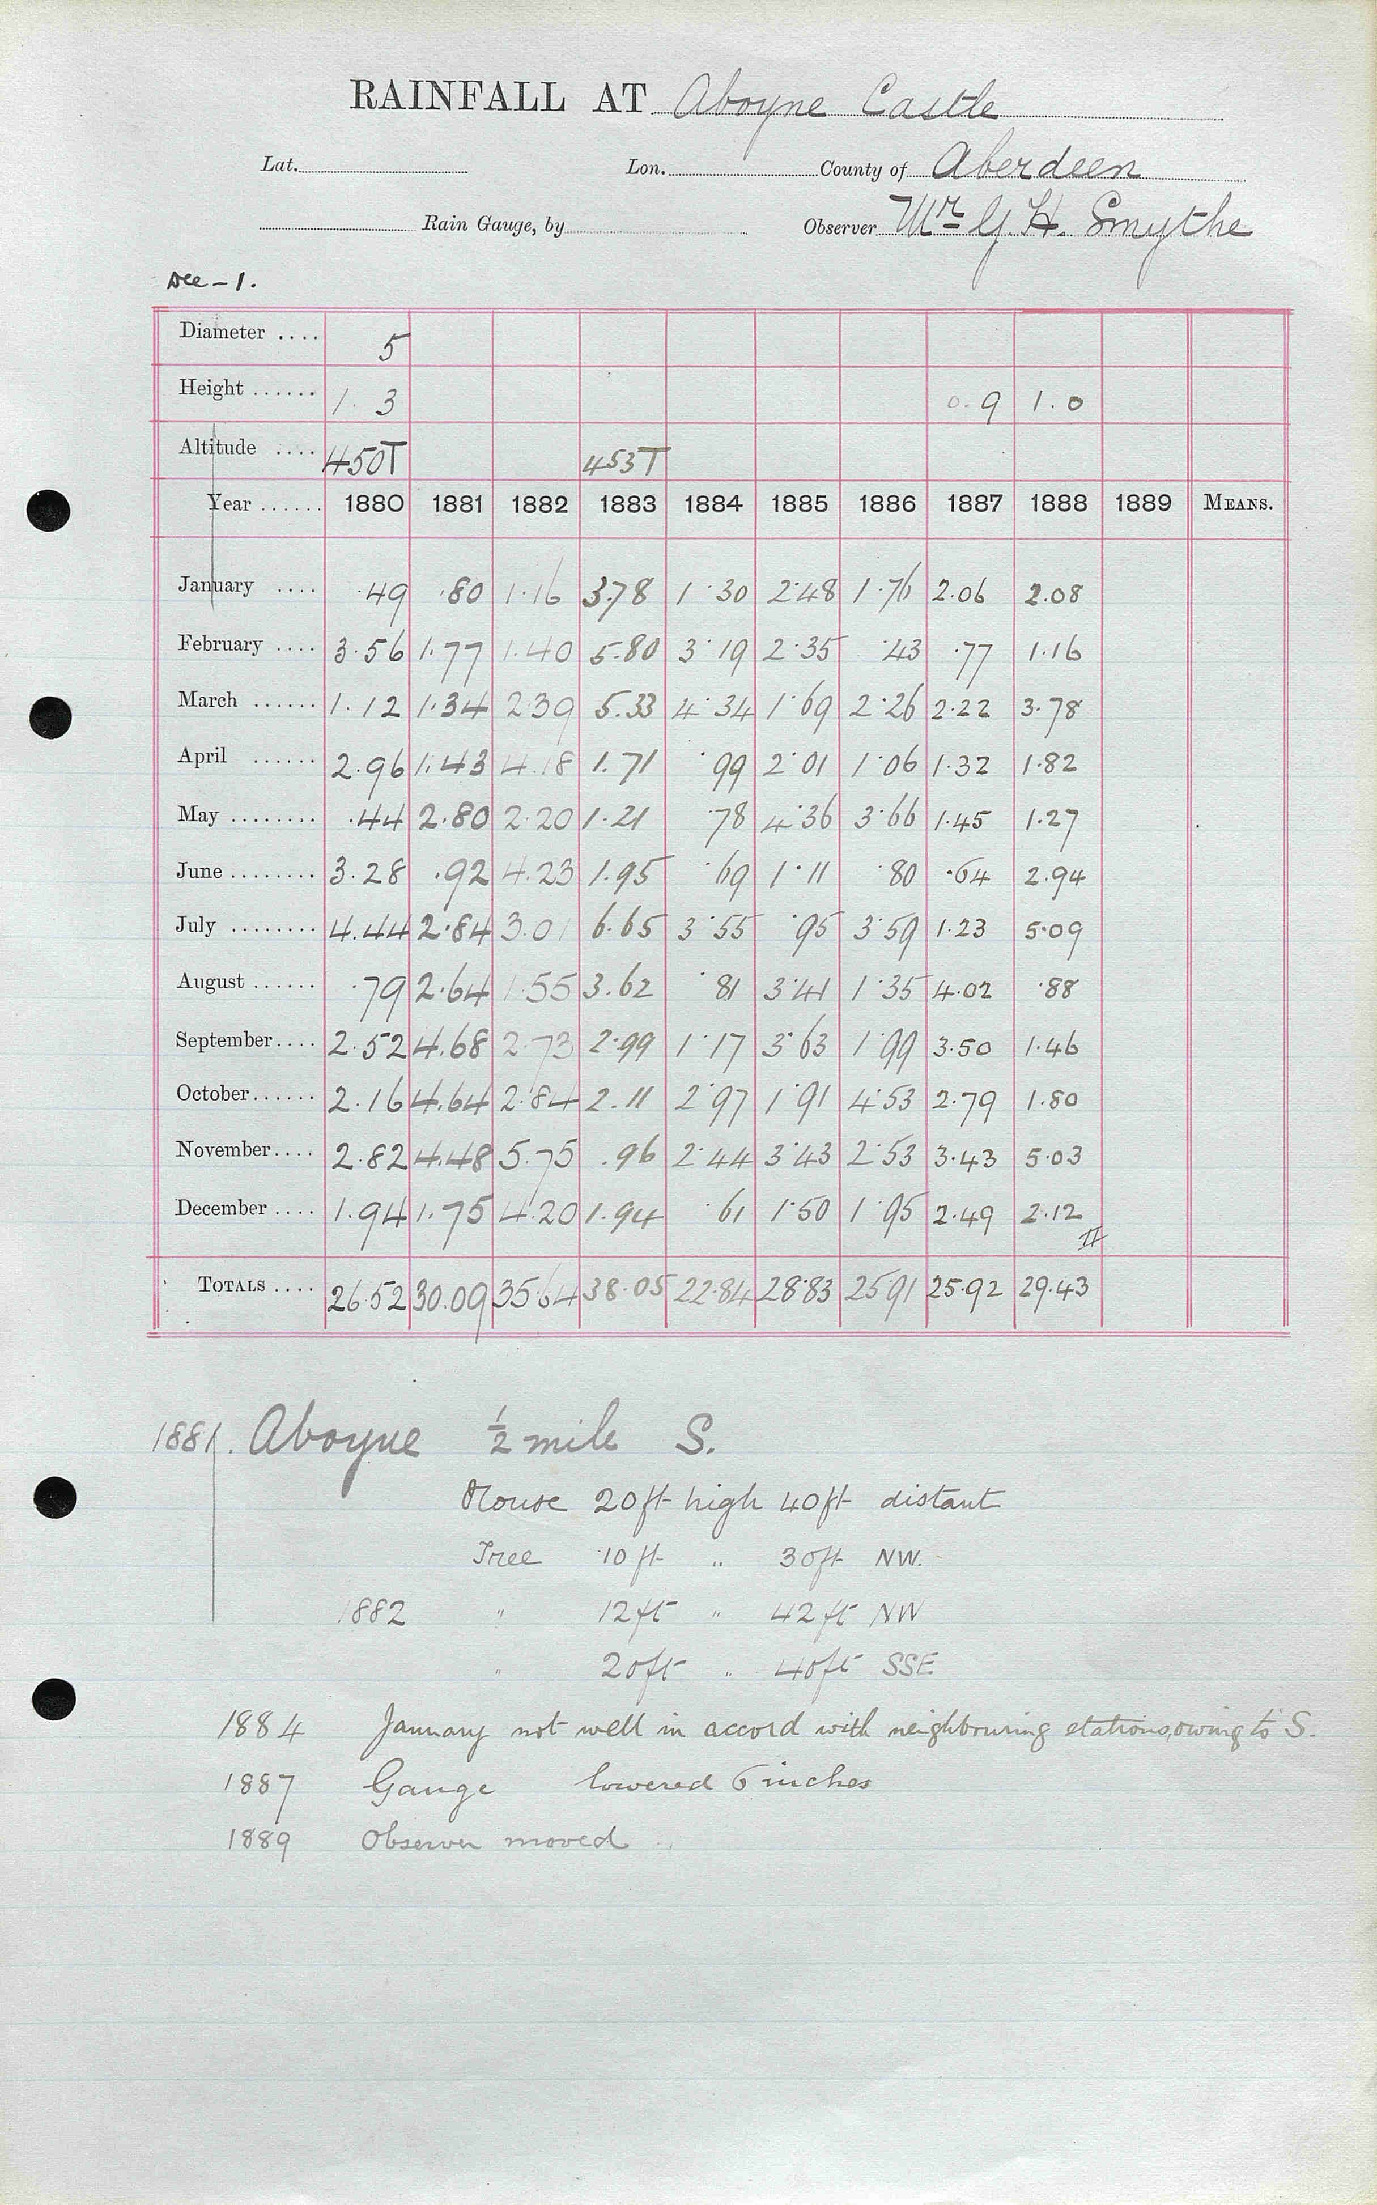 RAINFALL AT Aboyne Castle
Lat. Lon. County of Aberdeen
Rain Gauge, by Observer Mr G. H. Smythe
Dee - 1.
Diameter .... 5
Height ...... 1. 3 0.9 1.0
Altitude .... 450T 453T
Year ...... 1880 1881 1882 1883 1884 1885 1886 1887 1888 1889 MEANS.
January .... .49 .80 1.16 3.78 1.30 2.48 1.76 2.06 2.08
February .... 3.56 1.77 1.40 5.80 3.19 2.35 .43 .77 1.16
March ...... 1.12 1.34 2.39 5.33 4.34 1.69 2.26 2.22 3.78
April ...... 2.96 1.43 4.18 1.71 .99 2.01 1.06 1.32 1.82
May ........ .44 2.80 2.20 1.21 .78 4.36 3.66 1.45 1.27
June ........ 3.28 .92 4.23 1.95 .69 1.11 .80 .64 2.94
July ........ 4.44 2.84 3.01 6.65 3.55 .95 3.59 1.23 5.09
August ...... .79 2.64 1.55 3.62 .81 3.41 1.35 4.02 .88
September .... 2.52 4.68 2.73 2.99 1.17 3.63 1.99 3.50 1.46
October ...... 2.16 4.64 2.84 2.11 2.97 1.91 4.53 2.79 1.80
November .... 2.82 4.48 5.75 .96 2.44 3.43 2.53 3.43 5.03
December .... 1.94 1.75 4.20 1.94 .61 1.50 1.95 2.49 2.12
TOTALS .... 26.52 30.09 35.64 38.05 22.84 28.83 25.91 25.92 29.43
1881. Aboyne ½ mile S.
House 20ft high 40ft distant
Tree 10 ft " 30ft NW.
1882 " 12ft " 42ft NW
" 20ft " 40ft SSE
1884 January not well in accord with neighbouring stations, owing to S.
1887 Gauge lowered 6 inches
1889 Observer moved